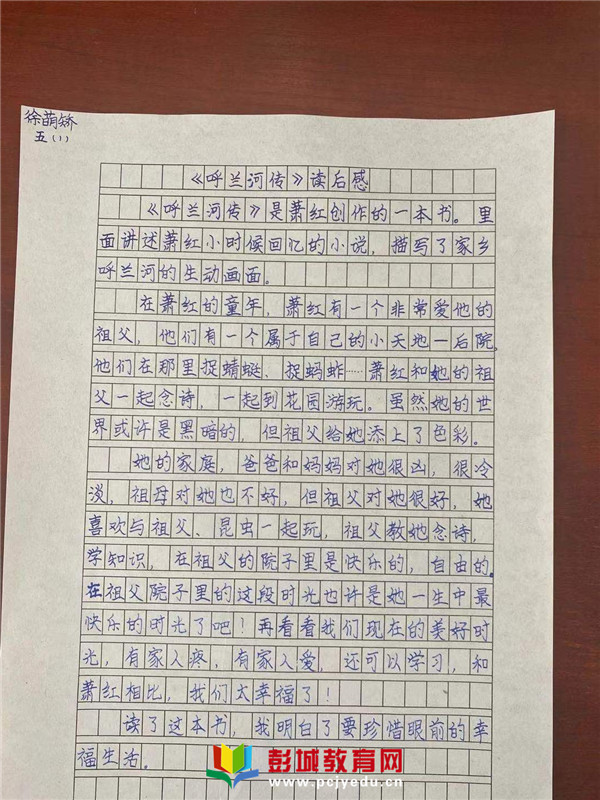 徐萌矫
五（1）
《呼兰河传》读后感
《呼兰河传》是萧红创作的一本书。里
面讲述萧红小时候回忆的小说，描写了家乡
呼兰河的生动画面。
在萧红的童年，萧红有一个非常爱他的
祖父，他们有一个属于自己的小天地一后院，
他们在那里捉蜻蜓、捉蚂蚱……萧红和她的祖
父一起念诗，一起到花园游玩。虽然她的世
界或许是黑暗的，但祖父给她添上了色彩。
她的家庭，爸爸和妈妈对她很凶，很冷
淡，祖母对她也不好，但祖父对她很好，她
喜欢与祖父、昆虫一起玩，祖父教她念诗，
学知识，在祖父的院子里是快乐的，自由的。
在祖父院子里的这段时光也许是她一生中最
快乐的时光了吧！再看看我们现在的美好时
光，有家人疼，有家人爱，还可以学习，和
萧红相比，我们太幸福了！
读了这本书，我明白了要珍惜眼前的幸
福生活。
彭城教育网
www.pcjyedu.cn